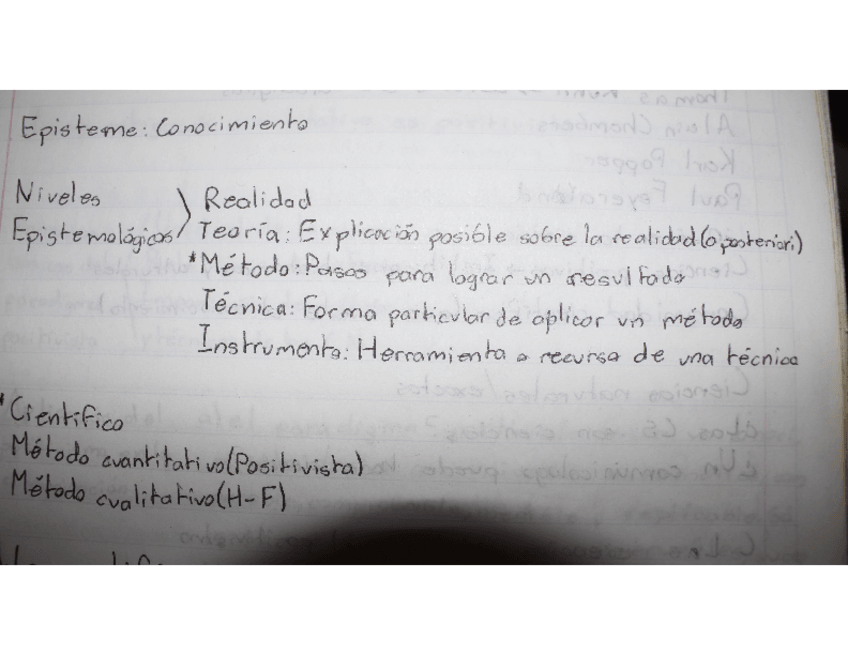 Episteme: Conocimiento
Niveles
Epistemológicos
Realidad
Teoría: Explicación posible sobre la realidad (a posteriori)
*Método: Pasos para lograr un resultado
Técnica: Forma particular de aplicar un método
Instrumento: Herramienta o recurso de una técnica
*Científico
Método cuantitativo (Positivista)
Método cualitativo (H-F)